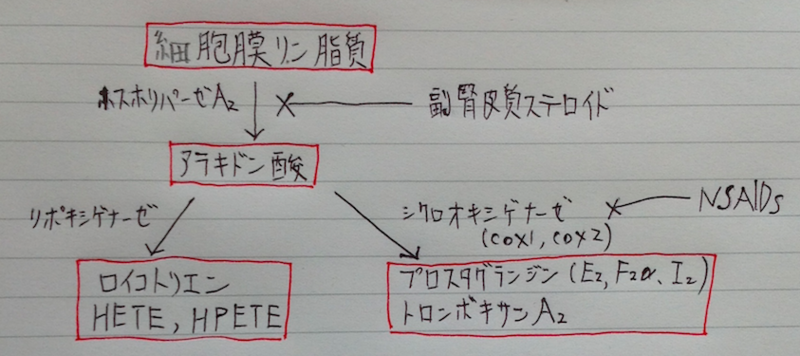 細胞膜リン脂質
ホスホリパーゼA₂
副腎皮質ステロイド
アラキドン酸
リポキシゲナーゼ
シクロオキシゲナーゼ
(COX1, COX2)
NSAIDs
ロイコトリエン
HETE, HPETE
プロスタグランジン (E₂, F₂α, I₂)
トロンボキサンA₂